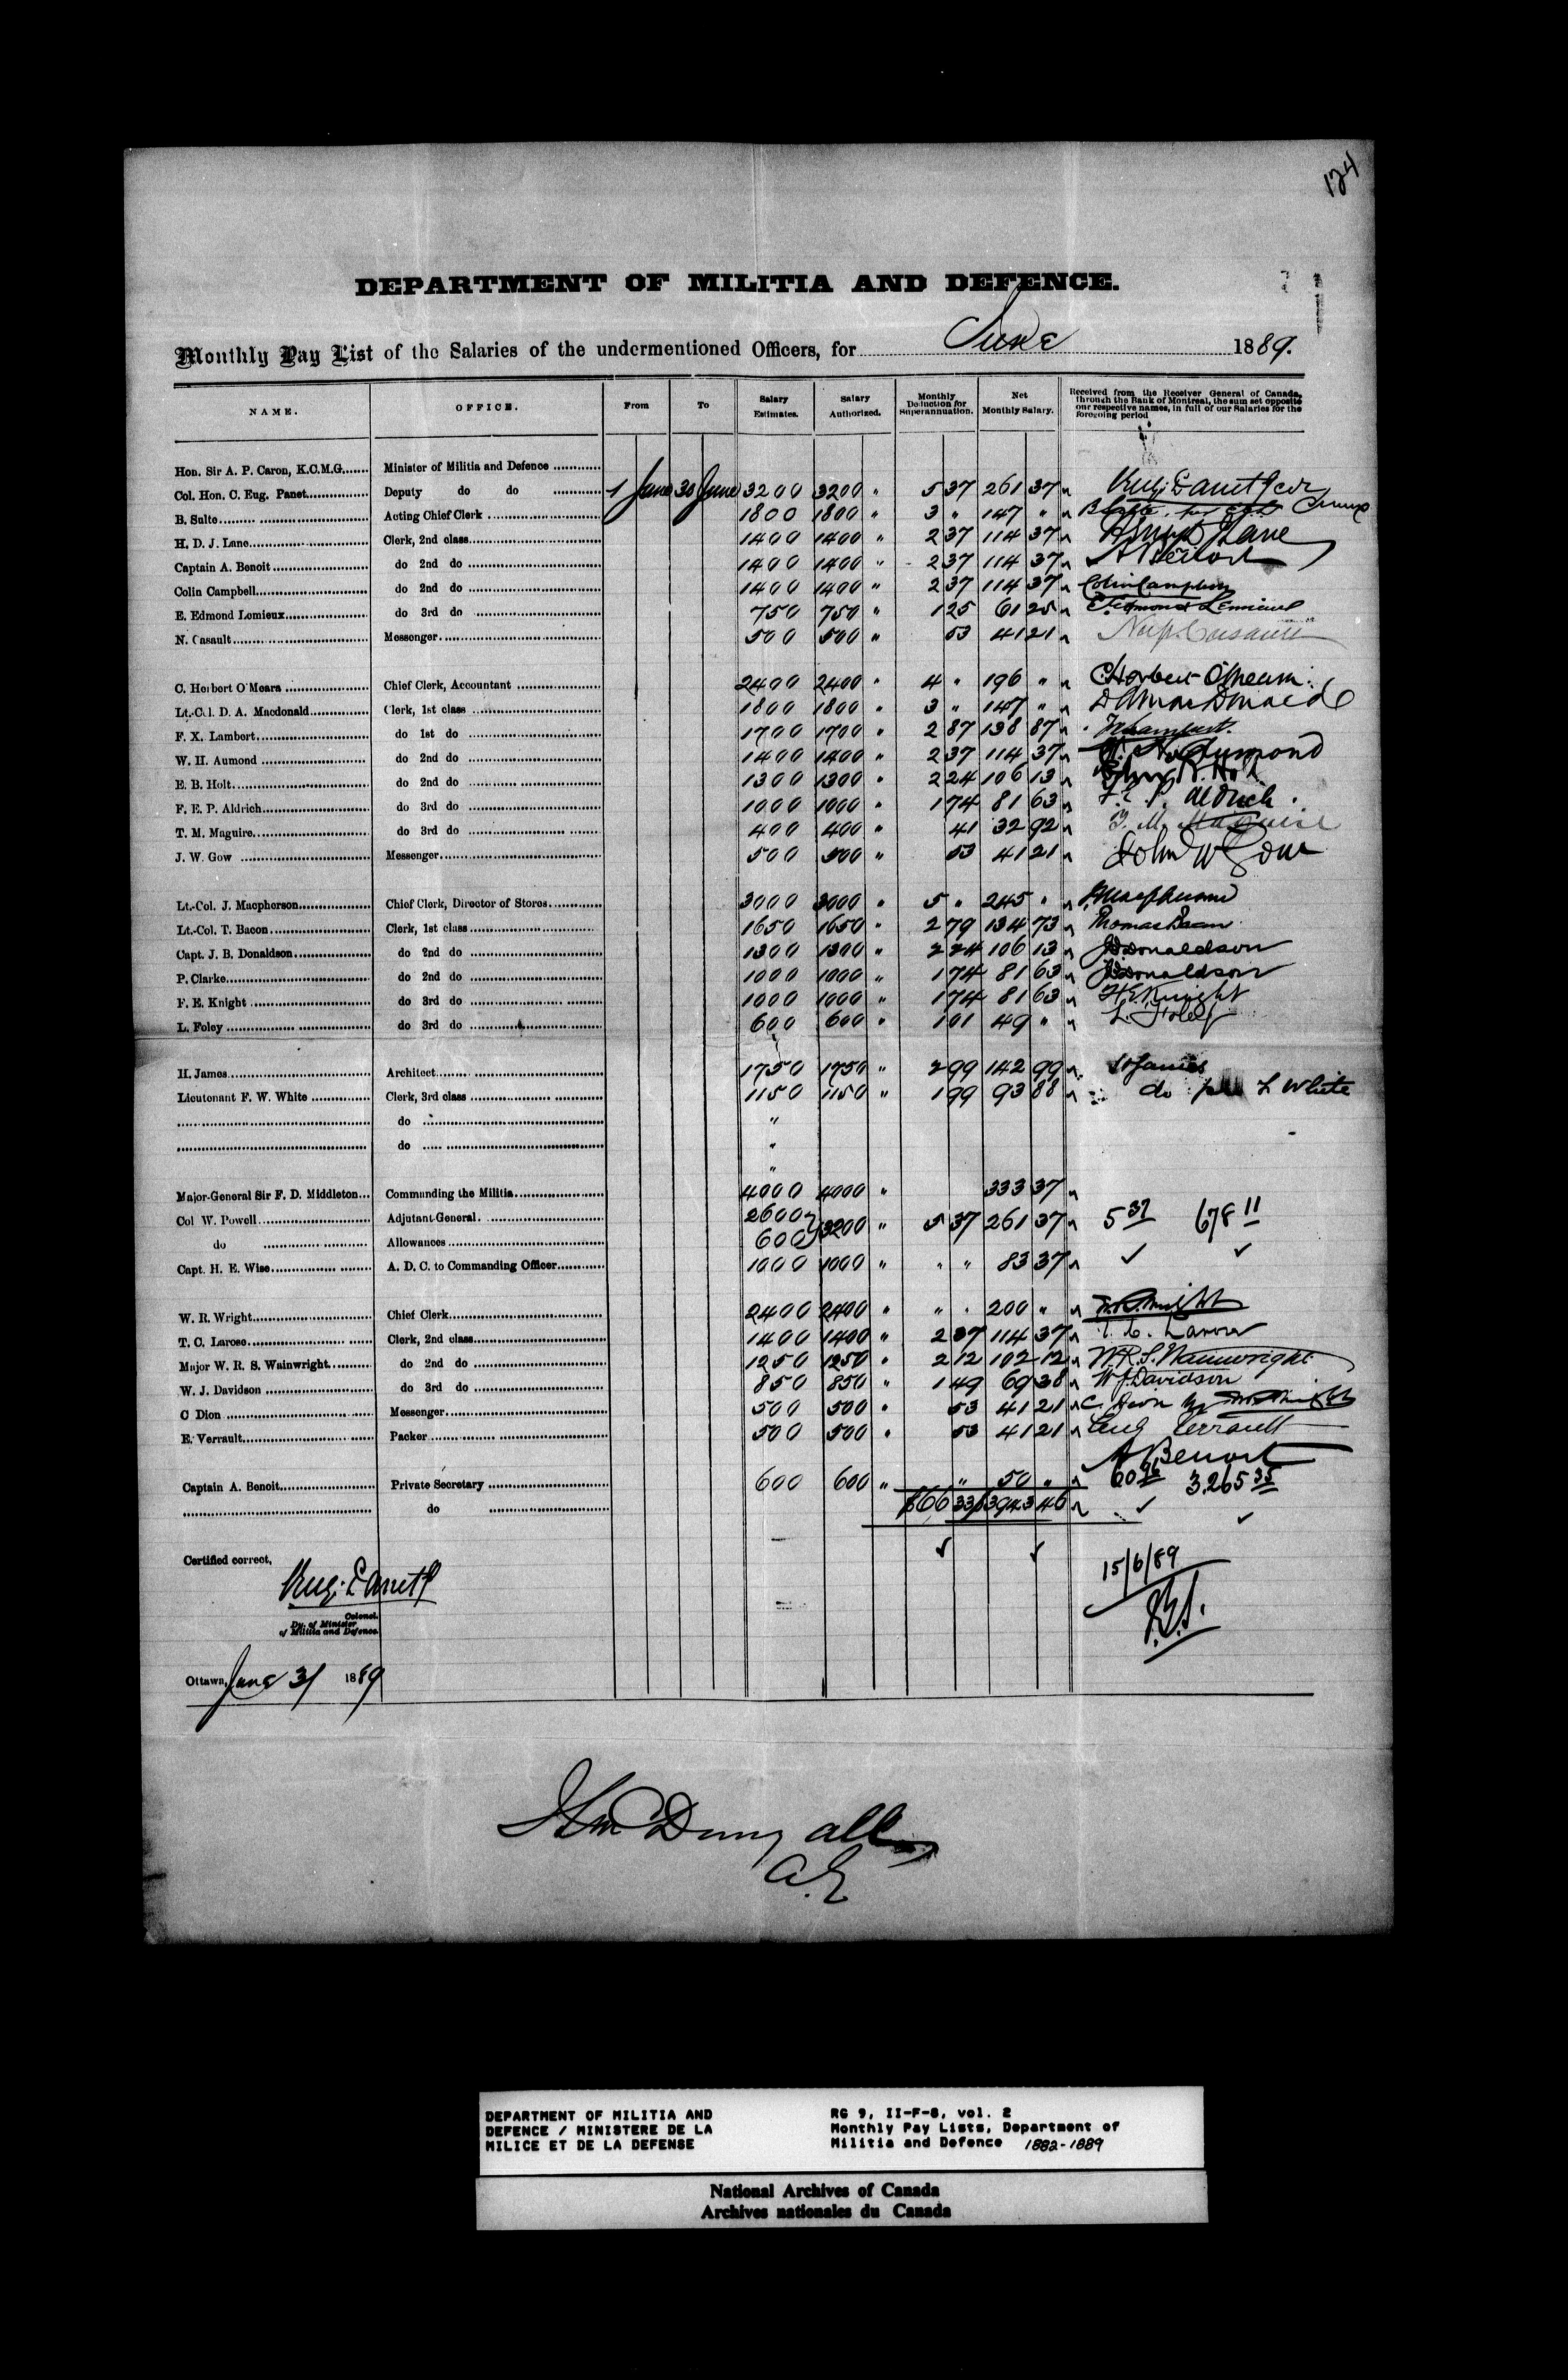 124
DEPARTMENT OF MILITIA AND DEFENCE.
Monthly Pay List of the Salaries of the undermentioned Officers, for June 1889.
NAME. OFFICE. From To Salary Estimates. Salary Authorized. Monthly Deduction for Superannuation. Net Monthly Salary. Received from the Receiver General of Canada, through the Bank of Montreal, the sum set opposite our respective names, in full of our Salaries for the foregoing period
Hon. Sir A. P. Caron, K.C.M.G. Minister of Militia and Defence
Col. Hon. C. Eug. Panet Deputy do do 1 June 30 June 3200 3200 " 5 37 261 37
B. Sulte Acting Chief Clerk 1800 1800 " 3 " 147 "
H. D. J. Lane Clerk, 2nd class 1400 1400 " 2 37 114 37
Captain A. Benoit do 2nd do 1400 1400 " 2 37 114 37 A Benoit
Colin Campbell do 2nd do 1400 1400 " 2 37 114 37 Colin Campbell
E. Edmond Lemieux do 3rd do 750 750 " 1 25 61 25 E. Edmond Lemieux
N. Casault Messenger 500 500 " 53 41 21 Nap. Casault
C. Herbert O'Meara Chief Clerk, Accountant 2400 2400 " 4 " 196 " C Herbert O'Meara
Lt.-Col. D. A. Macdonald Clerk, 1st class 1800 1800 " 3 " 147 " D A MacDonald
F. X. Lambert do 1st do 1700 1700 " 2 87 138 87 FX Lambert
W. H. Aumond do 2nd do 1400 1400 " 2 37 114 37 W. H. Aumond
E. B. Holt do 2nd do 1300 1300 " 2 24 106 13
F. E. P. Aldrich do 3rd do 1000 1000 " 1 74 81 63 F. E. P. Aldrich
T. M. Maguire do 3rd do 400 400 " 41 32 92 T. M. Maguire
J. W. Gow Messenger 500 500 " 53 41 21 John W Gow
Lt.-Col. J. Macpherson Chief Clerk, Director of Stores 3000 3000 " 5 " 245 " J Macpherson
Lt.-Col. T. Bacon Clerk, 1st class 1650 1650 " 2 79 134 73 Thomas Bacon
Capt. J. B. Donaldson do 2nd do 1300 1300 " 2 24 106 13 JBDonaldson
P. Clarke do 2nd do 1000 1000 " 1 74 81 63 JBDonaldson
F. E. Knight do 3rd do 1000 1000 " 1 74 81 63 F.E. Knight
L. Foley do 3rd do 600 600 " 1 01 49 " L. Foley
H. James Architect 1750 1750 " 2 99 142 99 H James
Lieutenant F. W. White Clerk, 3rd class 1150 1150 " 1 99 93 88 do White
do "
do "
"
Major-General Sir F. D. Middleton Commanding the Militia 4000 4000 " 333 37
Col W. Powell Adjutant-General 2600 3200 " 5 37 261 37 5 37 678 11
do Allowances 600
Capt. H. E. Wise A. D. C. to Commanding Officer 1000 1000 " " " 83 37
W. R. Wright Chief Clerk 2400 2400 " " " 200 " W.R. Wright
T. C. Larose Clerk, 2nd class 1400 1400 " 2 37 114 37 T. C. Larose
Major W. R. S. Wainwright do 2nd do 1250 1250 " 2 12 102 12 W.R.S. Wainwright
W. J. Davidson do 3rd do 850 850 " 1 49 69 38 W J Davidson
C Dion Messenger 500 500 " 53 41 21 C. Dion
E. Verrault Packer 500 500 " 53 41 21 Eug Verrault
A Benoit
Captain A. Benoit Private Secretary 600 600 " " 50 " 60 96 3.265 35
do 66 33 3943 46
Certified correct,
Eug. Panet
Colonel.
Dy. of Minister
of Militia and Defence.
15/6/89
Ottawa, June 31 1889
A.G
DEPARTMENT OF MILITIA AND
DEFENCE / MINISTERE DE LA
MILICE ET DE LA DEFENSE
RG 9, II-F-8, vol. 2
Monthly Pay Lists, Department of
Militia and Defence 1882-1889
National Archives of Canada
Archives nationales du Canada